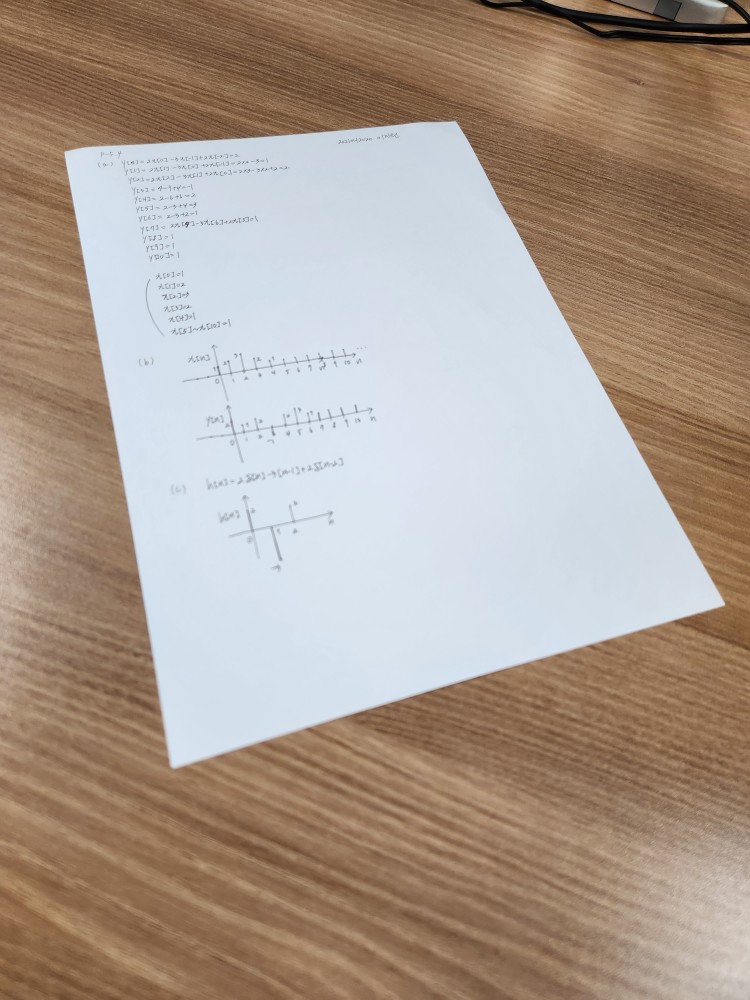 P-5.4
(a) y[0] = 2x[0] - 3x[-1] + 2x[-2] = 2
y[1] = 2x[1] - 3x[0] + 2x[-1] = 2×2 - 3 = 1
y[2] = 2x[2] - 3x[1] + 2x[0] = 2×3 - 3×2 + 2 = 2
y[3] = 4-9+4=-1
y[4] = 2-6+6=2
y[5] = 2-3+4=3
y[6] = 2-3+2=1
y[7] = 2x[7]-3x[6]+2x[5]=1
y[8]=1
y[9]=1
y[10]=1
x[0]=1
x[1]=2
x[2]=3
x[3]=2
x[4]=1
x[5]~x[10]=1
(b) x[n]
2 3 2 1 ...
0 1 2 3 4 5 6 7 8 9 10 n
y[n]
2 1 2 2 3 1
0 1 2 -1 4 5 6 7 8 9 10 n
(c) h[n] = 2δ[n] -3[n-1] + 2δ[n-2]
h[n] 2 2
0 1 2 n
-3